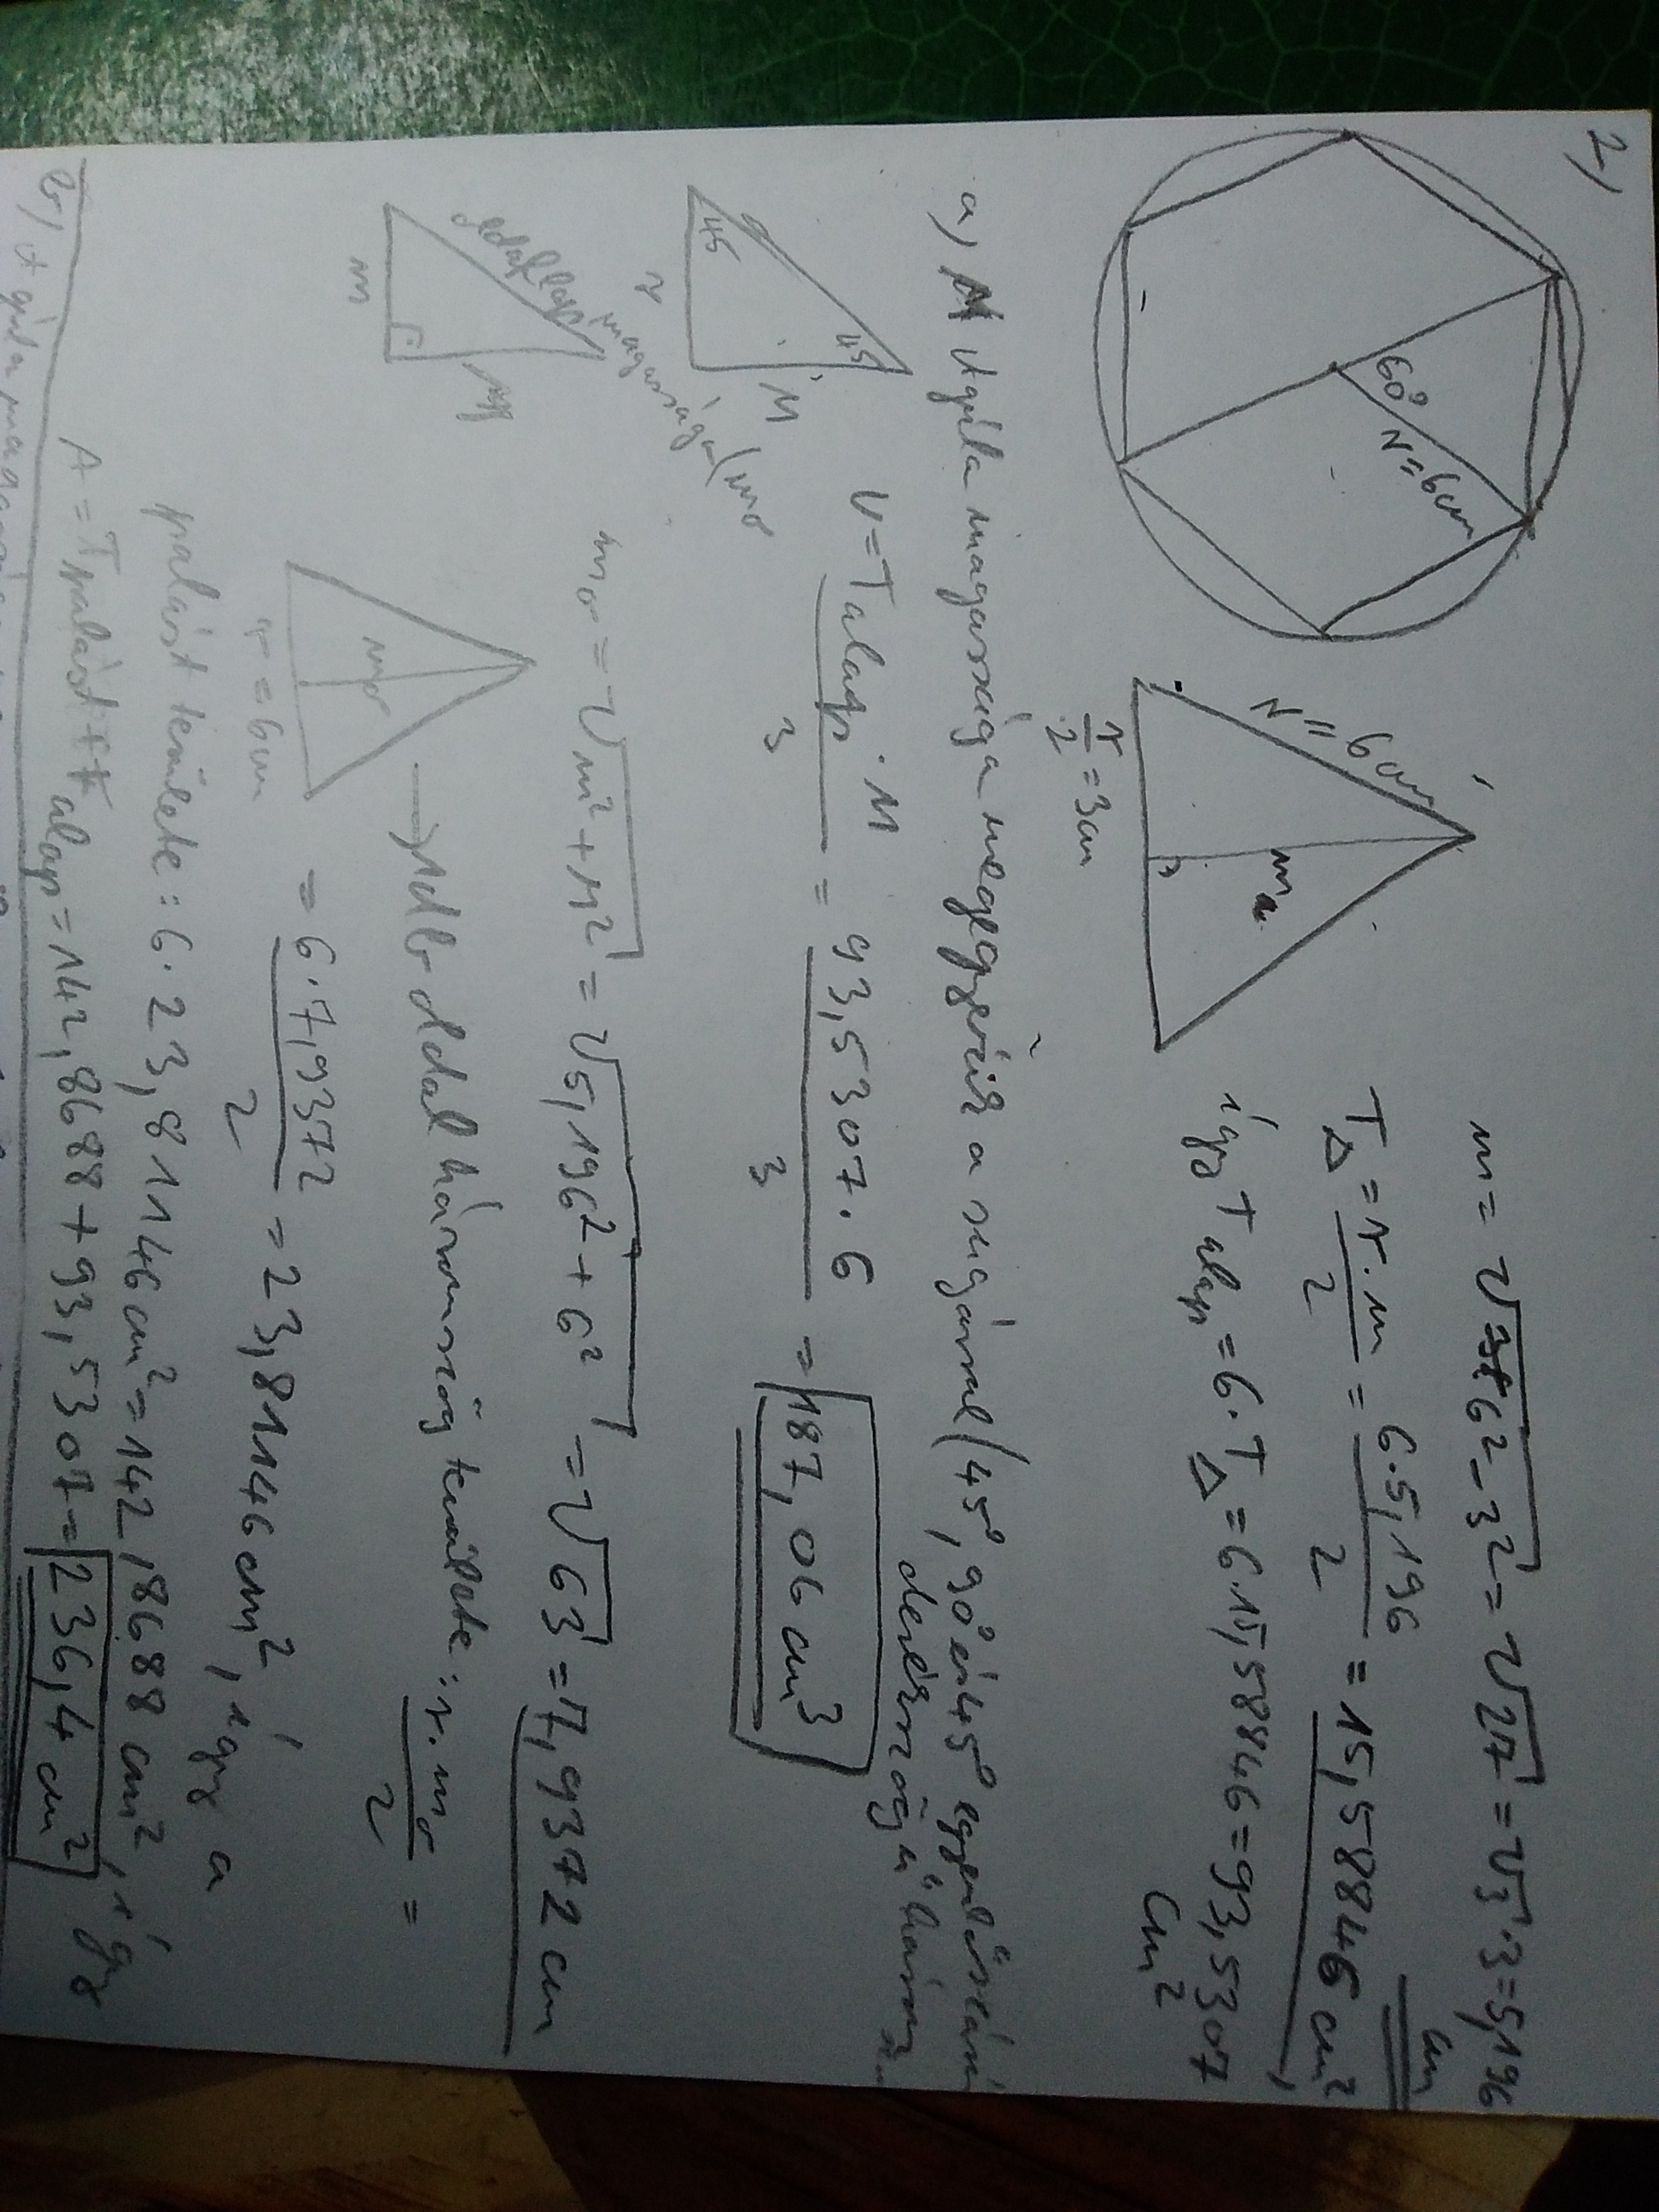 2,
60°
r=6cm
r=6cm
ma
r/2=3cm
m=√6²-3²=√27=√3·3=5,196 cm
T△=r·m/2=6·5,196/2=15,58846 cm²,
így T alap=6·T△=6·15,58846=93,5307 cm²
a, A gúla magassága megegyezik a sugárral (45°, 90° és 45° egyenlőszárú
derékszögű három
45
45
r
M
V=Talap·M/3=93,5307·6/3=187,06 cm³
oldallap magassága (mo
m
mo=√m²+M²=√5,196²+6²=√63=7,9372 cm
mo
r=6cm
→1db oldal háromszög területe: r·mo/2=
=6·7,9372/2=23,81146 cm², így a
palást területe: 6·23,81146cm²=142,8688 cm², így
A=Tpalást+Talap=142,8688+93,5307=236,4 cm²
b) A gúla